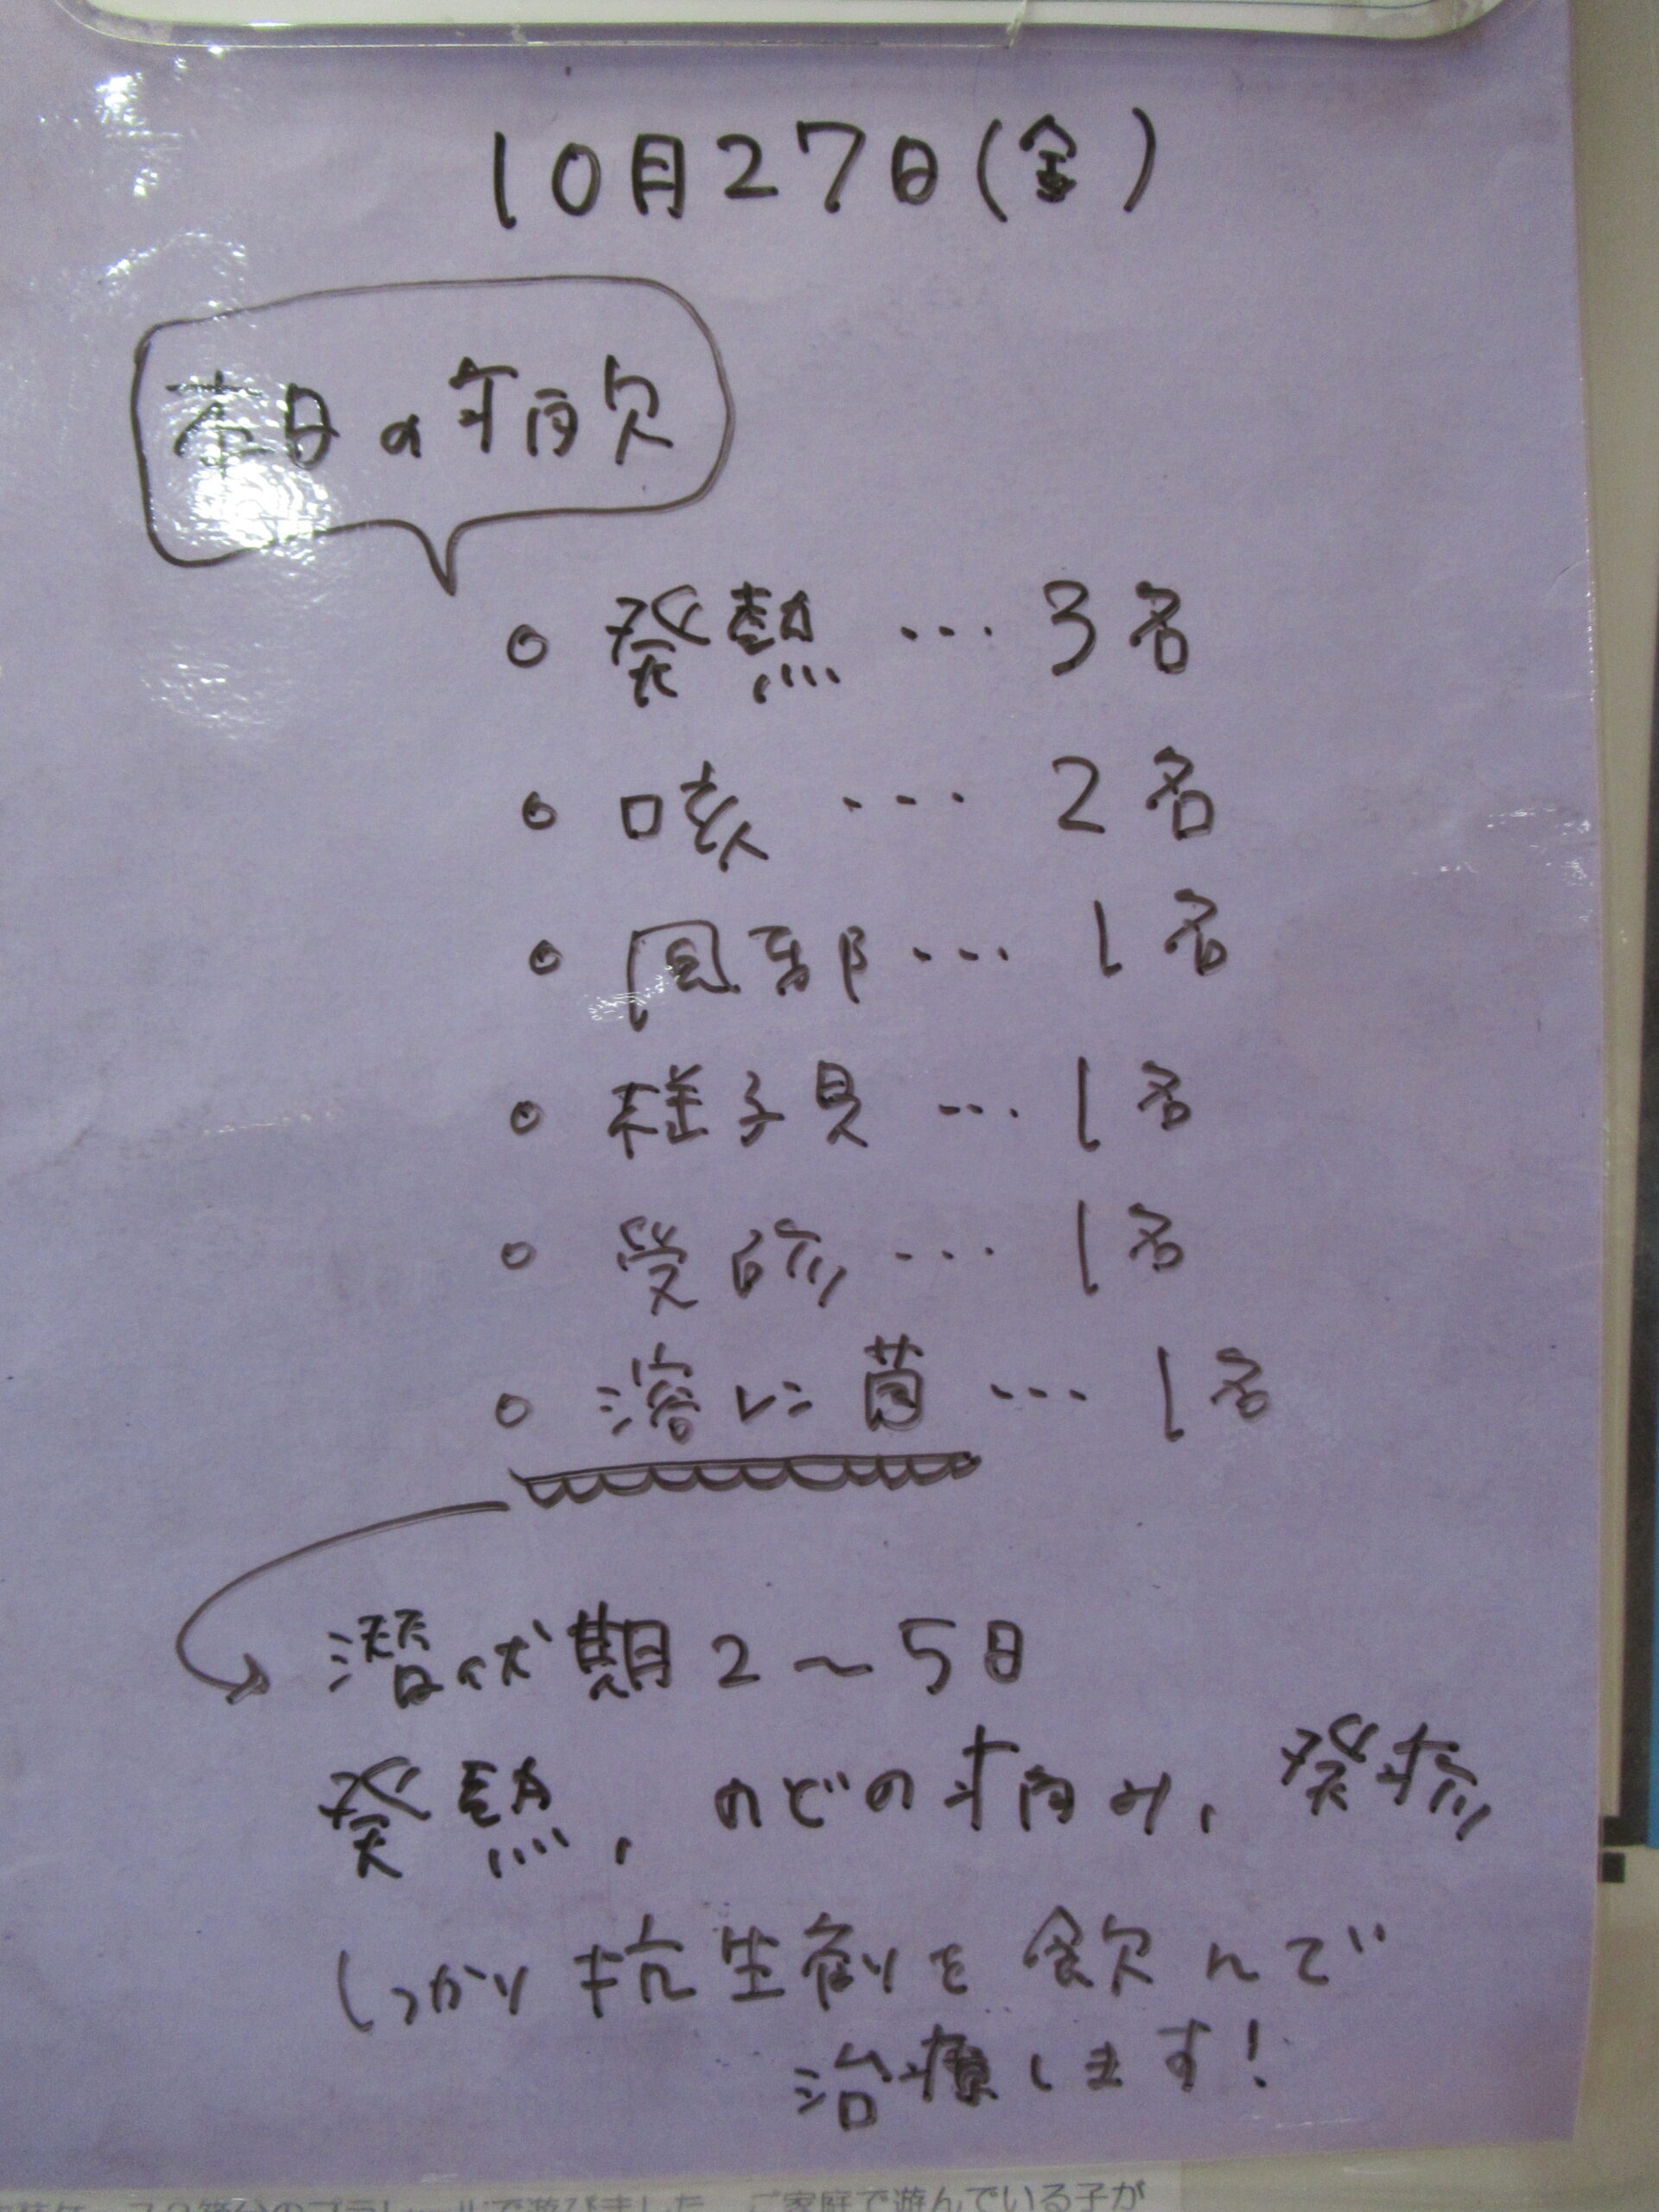 10月27日(金)
本日の病欠
○ 発熱 … 3名
○ 咳 … 2名
○ 風邪 … 1名
○ 様子見 … 1名
○ 受診 … 1名
○ 溶レン菌 … 1名
潜伏期2～5日
発熱、のどの痛み、発疹
しっかり抗生剤を飲んで
治療します!
プラレールで遊びました。ご家庭で遊んでいる子が